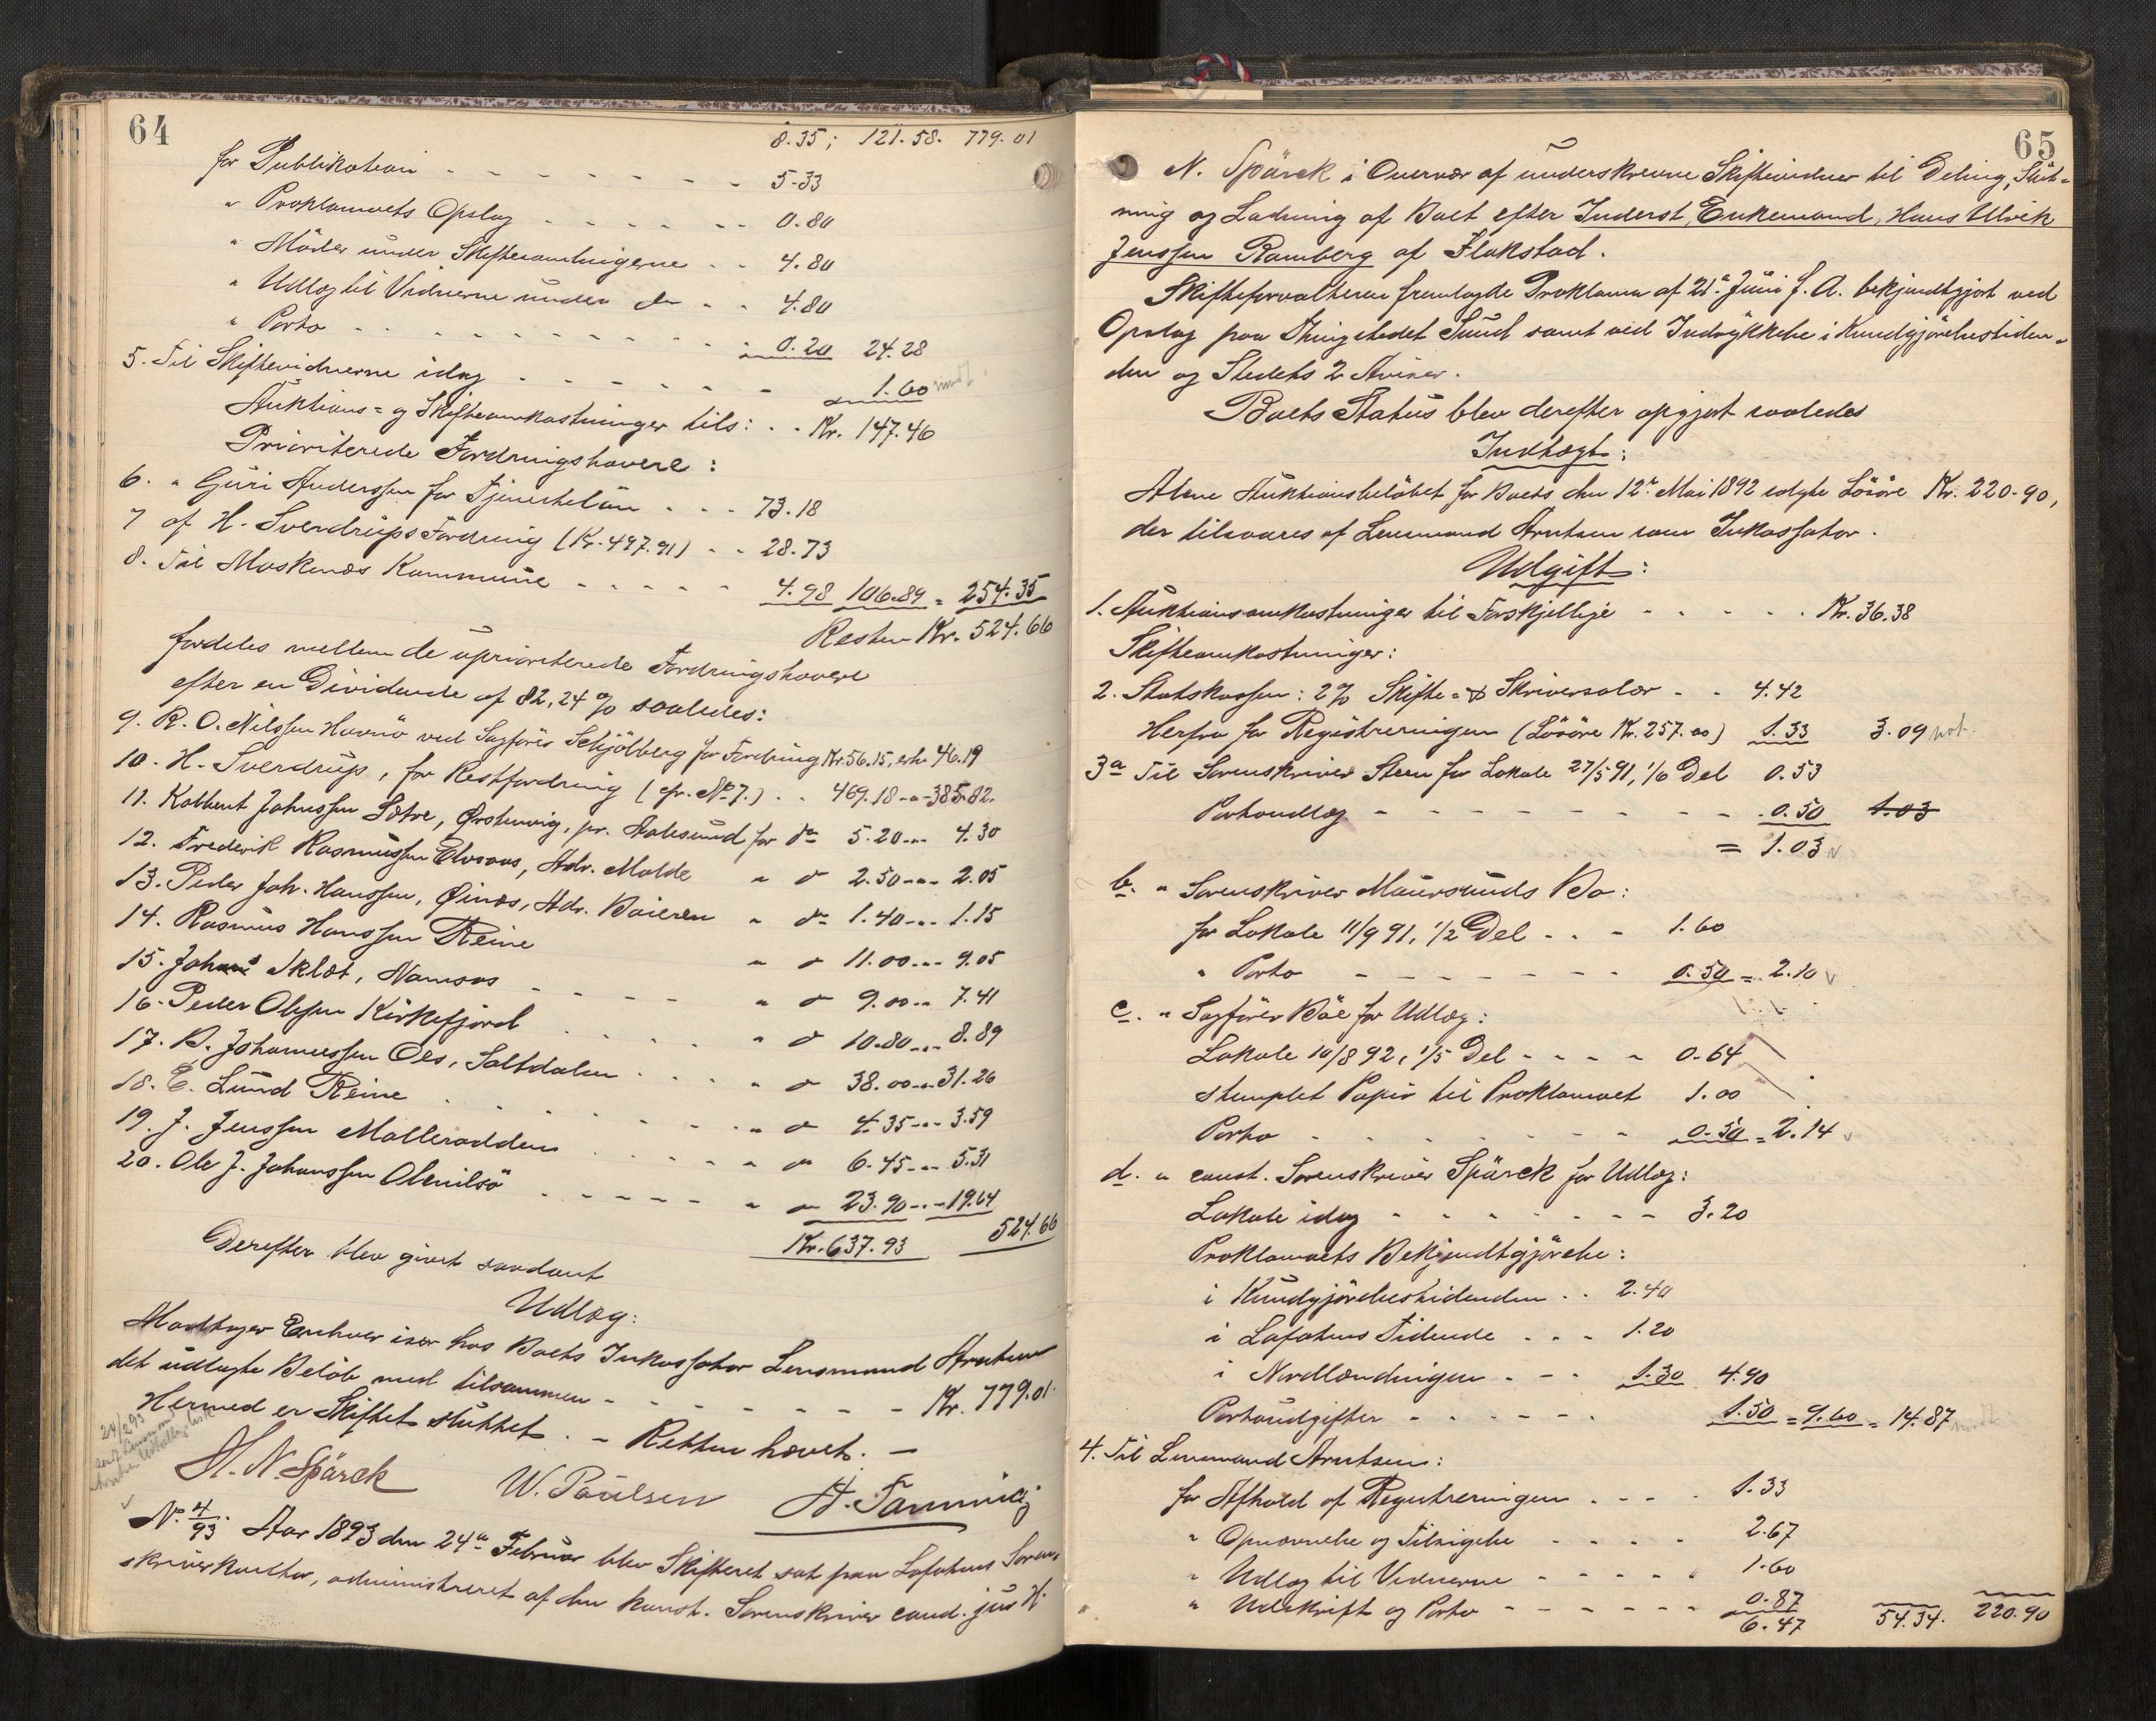 64
8.35; 121.58. 779.01
for Publikation - - - - - - - 5-33
" Proklamaets Opslag - - - - - - 0.80
" Möder under Skiftesamlingerne - - 4.80
" Udlæg til Vidnerne under do - - 4.80
" Porto - - - - - - - - - 0.20 24.28
5. Til Skiftevidnerne idag - - - - - - 1.60
Auktions= og Skifteomkostninger tils: - - Kr. 147.46
Prioriterede Fordringshavere:
6. " Guri Anderssen for Tjenestelön - - - 73.18
7 af H. Sverdrups Fordring (Kr. 497.91) - - 28.73
8. Til Moskenæs Kommune - - - - - 4.98 106.89 = 254.35
Resten Kr. 524.66
fordeles mellem de uprioriterede Fordringshavere
efter en Dividende af 82,24 % saaledes:
9. R. O. Nilssen Havnö ved Sagförer Schjölberg for Fordring Kr. 56.15, erh. 46.19
10. H. Sverdrup, for Restfordring (cfr. No 7.) - - 469.18 - " - 385.82.
11. Kolbent Johnssen Sætre, Ørstenvig, pr. Aalesund for do 5.20 - " - 4.30
12. Frederik Rasmussen Elvsaas, Adr. Molde " do 2.50 - " - 2.05
13. Peder Joh. Hanssen, Øinæs, Adr. Beieren " do 1.40 - " - 1.15
14. Rasmus Hanssen Reine " do 11.00 - " - 9.05
15. Johan Sklæt, Namsos - - - - " do 9.00 - " 7.41
16. Peder Olssen Kirkefjord - - - - " do 10.80 - " - 8.89
17. B. Johannessen Oes, Saltdalen - - - - " do 38.00 - " - 31.26
18. E. Lund Reine - - - - - - " do 4.35 - " - 3.59
19. J. Jenssen Molleradden - - - - - " do 6.45 - " - 5.31
20. Ole J. Johanssen Olenilsö - - - - - " do 23.90 - " - 19.64
Kr. 637.93 524.66
Derefter blev givet saadant
Udlæg:
Modtager Enhver især hos Boets Inkassator Lensmand Arntsen
det udlagte Belöb med tilsammen - - - - - - - - Kr. 779.01.
Hermed er Skiftet sluttet. - Retten hævet. -
24/2 93
H. N. Spärck W. Paulsen
No 4/93. Aar 1893 den 24de Februar blev Skifteret sat paa Lofotens Soren-
skriverkontor, administreret af den konst. Sorenskriver cand. jur H.
65
N. Spärck i Overvær af underskrevne Skiftevidner til Deling, Slut-
ning og Ladning af Boet efter Inderst, Enkemand, Hans Ulrik
Jenssen Ramberg af Flakstad.
Skifteforvalteren fremlagde Proklama af 21de Juni f. A. bekjendtgjort ved
Opslag paa Thingstedet Sund samt ved Indrykkelse i Kundgjörelsestiden-
den og Stedets 2 Aviser.
Boets Status blev derefter opgjort saaledes
Indtægt:
Alene Auktionsbelöbet for Boets den 12te Mai 1892 solgte Lösöre Kr. 220-90,
der tilsvares af Lensmand Arntsen som Inkassator.
Udgift:
1. Auktionsomkostninger til Forskjellige - - - - - - Kr. 36.38
Skifteomkostninger:
2. Statskassen: 2 % Skifte- & Skriversalær - - 4.42
Herfra for Registreringen (Lösöre Kr. 257.00) 1.33 3.09
3 a Til Sorenskriver Steen for Lokale 27/5 91, 1/6 Del 0.53
Portoudlæg - - - - - - - - - 0.50 1.03
= 1.03
b. " Sorenskriver Maursunds Bo:
for Lokale 11/9 91, 1/2 Del - - - 1.60
" Porto - - - - - - - 0.50 = 2.10
c. " Sagförer Böe for Udlæg:
Lokale 10/8 92, 1/5 Del - - - - 0.64
stemplet Papir til Proklamaet 1.00
Porto - - - - - - - 0.50 = 2.14
d. " const. Sorenskriver Spärck for Udlæg:
Lokale idag - - - - - - - - 3.20
Proklamaets Bekjendtgjörelse:
i Kundgjörelsestidenden - - 2.40
i Lofotens Tidende - - - 1.20
i Nordlændingen - - - 1.30 4.90
Portoudgifter - - - - - - 1.50 = 9.60 = 14.87
4. Til Lensmand Arntsen:
for Afhold af Registreringen - - - - 1.33
" Opnævnelse og Tilsigelse - - - - 2.67
" Udlæg til Vidnerne - - - - - - 1.60
" Udskrift og Porto - - - - - - - 0.87
6.47 54.34. 220.90